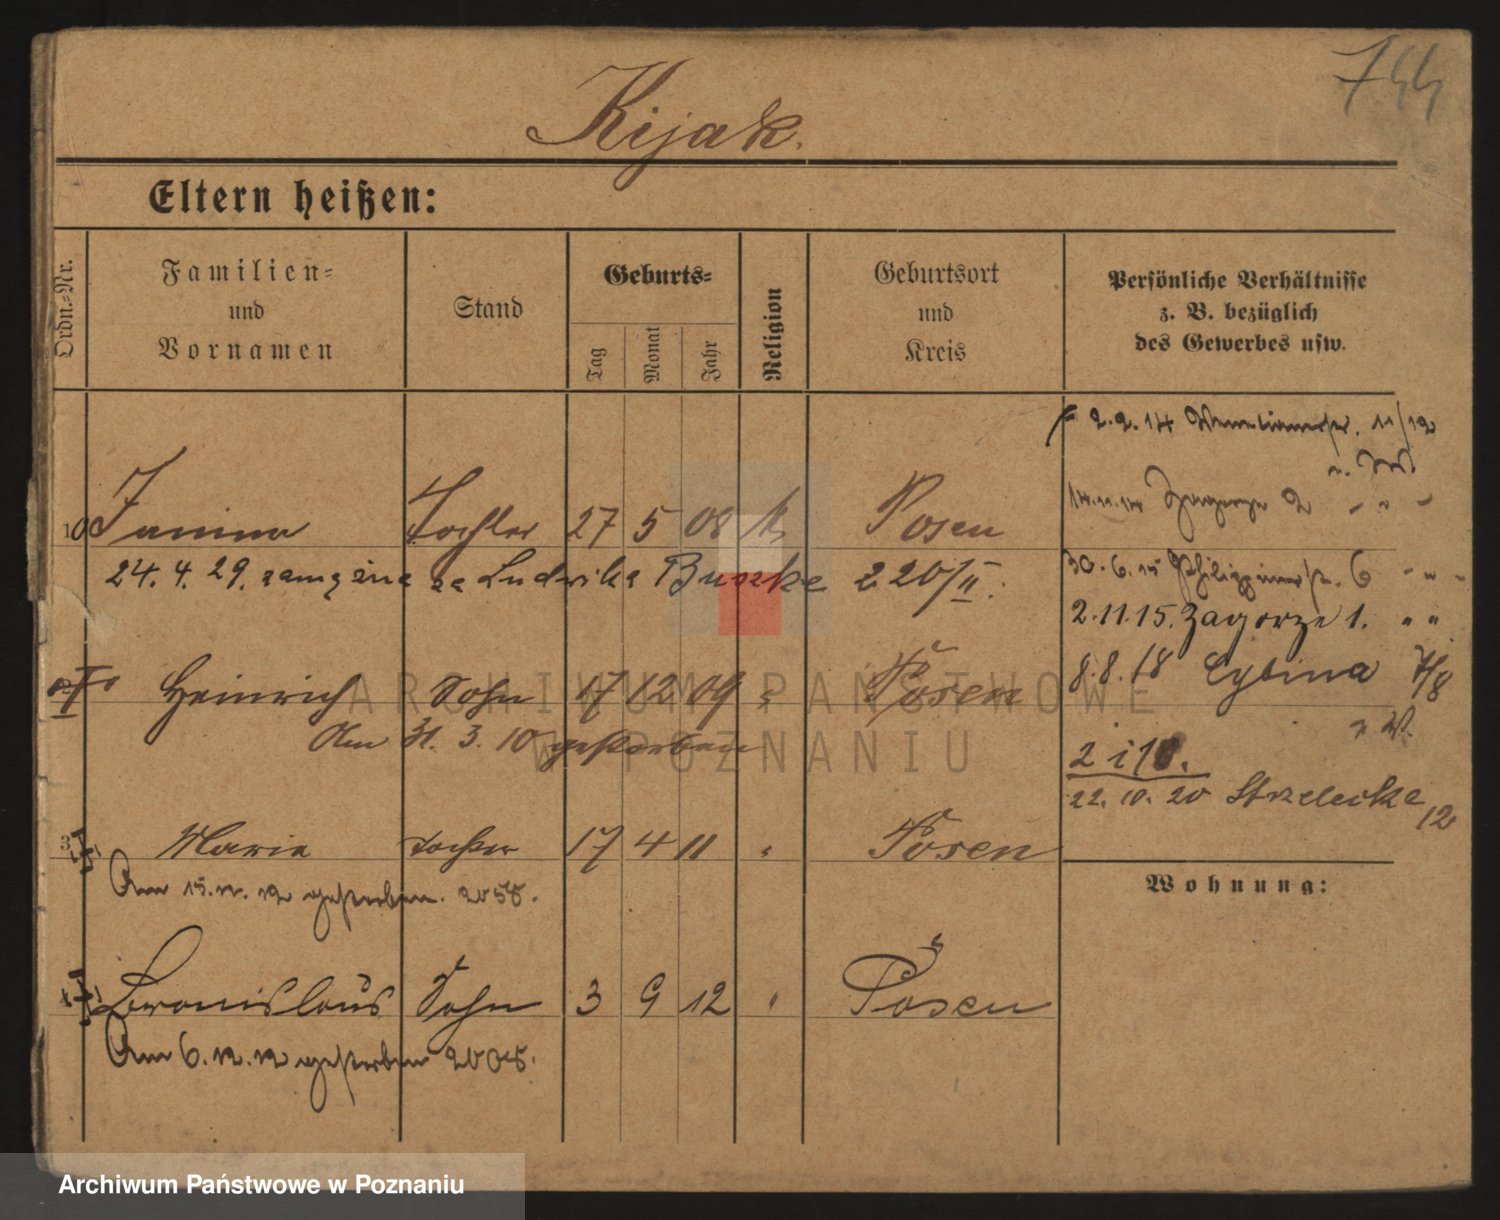 744
Kijak.
Eltern heißen:
Ordn.-Nr.
Familien-
und
Vornamen
Stand
Geburts-
Tag
Monat
Jahr
Religion
Geburtsort
und
Kreis
Persönliche Verhältnisse
z. B. bezüglich
des Gewerbes usw.
2.2.14 11/12
Janina Tochter 27 5 08 k Posen
14.11.14 Zagorze 2 " "
24. 4. 29. zamężna za Ludwika Buszke 220/II.
30.6.15 Philippinerstr. 6 " "
2.11.15. Zagorze 1. " "
Heinrich Sohn 17 12 09 " Posen
8.8.18 Cybina 7/8
Am 31. 3. 10 gestorben
22. 10. 20 Strzelecka 12
3 Marie Tochter 17 4 11 " Posen
Am 15.12.12 gestorben. 2058.
Wohnung:
4 Bronislaus Sohn 3 9 12 " Posen
Am 6.12.12 gestorben 2008.
ARCHIWUM PAŃSTWOWE
W POZNANIU
Archiwum Państwowe w Poznaniu